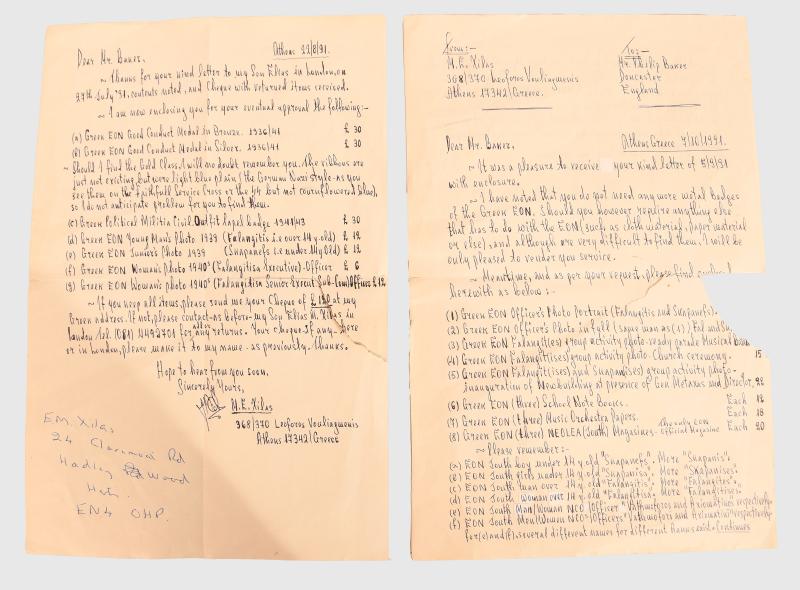 Dear Mr. Baker,
Athens 22/8/91.
~ Thanks for your kind letter to my Son Elias in London, on
27th July '91, contents noted, and Cheque with returned items received.
~ I am now enclosing you for your eventual approval the following:-
(a) Greek EON Good Conduct Medal in Bronze. 1936/41 £ 30
(b) Greek EON Good Conduct Medal in Silver. 1936/41 £ 30
~ Should I find the Gold Class, I will no doubt remember you. The ribbons are
just not existing, but were light blue plain (the German Nazi style - as you
see them on the Faithfull Service Cross or the y4 but not cornflowered Silver),
so I do not anticipate problem for you to find them.
(c) Greek Political Militia Civil Outfit lapel badge 1941/43 £ 30
(d) Greek EON Young Man's Photo 1939 (Falangitis i.e over 14 y-old) £ 12
(e) Greek EON Junior's Photo 1939 (Snapanefs i.e under 14y Old) £ 12
(f) Greek EON Woman's photo 1940' (Falangitisa Executive)-Officer £ 6
(g) Greek EON Woman's photo 1940' (Falangitisa Senior Execut Sub-Com) Officer £ 12
~ If you need all items, please send me your Cheque of £ 120 at my
Greek address. If not, please contact - as before - my Son Elias M. Xilas in
London Tel. (081) 4492701 for any returns. Your Cheque - if any - here
or in London, please make it to my name - as previously. Thanks.
Hope to hear from you soon.
Sincerely Yours,
M.E. Xilas
368/370 Leoforos Vouliagmenis
Athens 17342/Greece
EM. Xilas
24 Claremont Rd
Hadley Wood
Herts.
EN4 OHP.
From:-
M.E. Xilas
368/370 Leoforos Vouliagmenis
Athens 17342/Greece.
To:-
Mr. Philip Baker
Doncaster
England
Dear Mr. Baker,
Athens Greece 7/10/1991.
~ It was a pleasure to receive your kind letter of 2/9/91
with enclosure.
~ I have noted that you do not need any more metal badges
of the Greek EON. Should you however require anything else
that has to do with the EON (such as cloth material, paper material
or else), and although are very difficult to find them, I will be
only pleased to render you service.
~ Meantime, and as per your request, please find
herewith as below :-
(1) Greek EON Officer's Photo Portrait (Falangitis and Snapanefs).
(2) Greek EON Officer's Photo in full (same man as (1)) Fal and
(3) Greek EON Falangit(ies) group activity photo - ready parade Musical
(4) Greek EON Falangit(ises) group activity photo - Church ceremony. 15
(5) Greek EON Falangit(ises) and Snapanises) group activity photo -
inauguration of New building at presence of Gen Metaxas and Director, 22
(6) Greek EON (three) School Note Books. Each 12
(7) Greek EON (three) Music Orchestra Papers. Each 18
(8) Greek EON (three) NEOLEA (Youth) Magazines - The only EON Official Magazine Each 20
~ Please remember:-
(a) EON Youth boy under 14 y. old "Snapanefs". More "Snapanis".
(b) EON Youth girls under 14 y. old "Snapanisa". More "Snapanises".
(c) EON Youth man over 14 y. old "Falangitis". More "Falangites".
(d) EON Youth woman over 14 y. old "Falangitisa". More "Falangitises".
(e) EON Youth Man/Woman NCO/Officer Vathmoforos and Axiomatikos respectively.
(f) EON Youth Men/Women NCOs/Officers Vathmofori and Axiomatiki respectively.
for (e) and (f), several different names for different Ranks exist. Continues